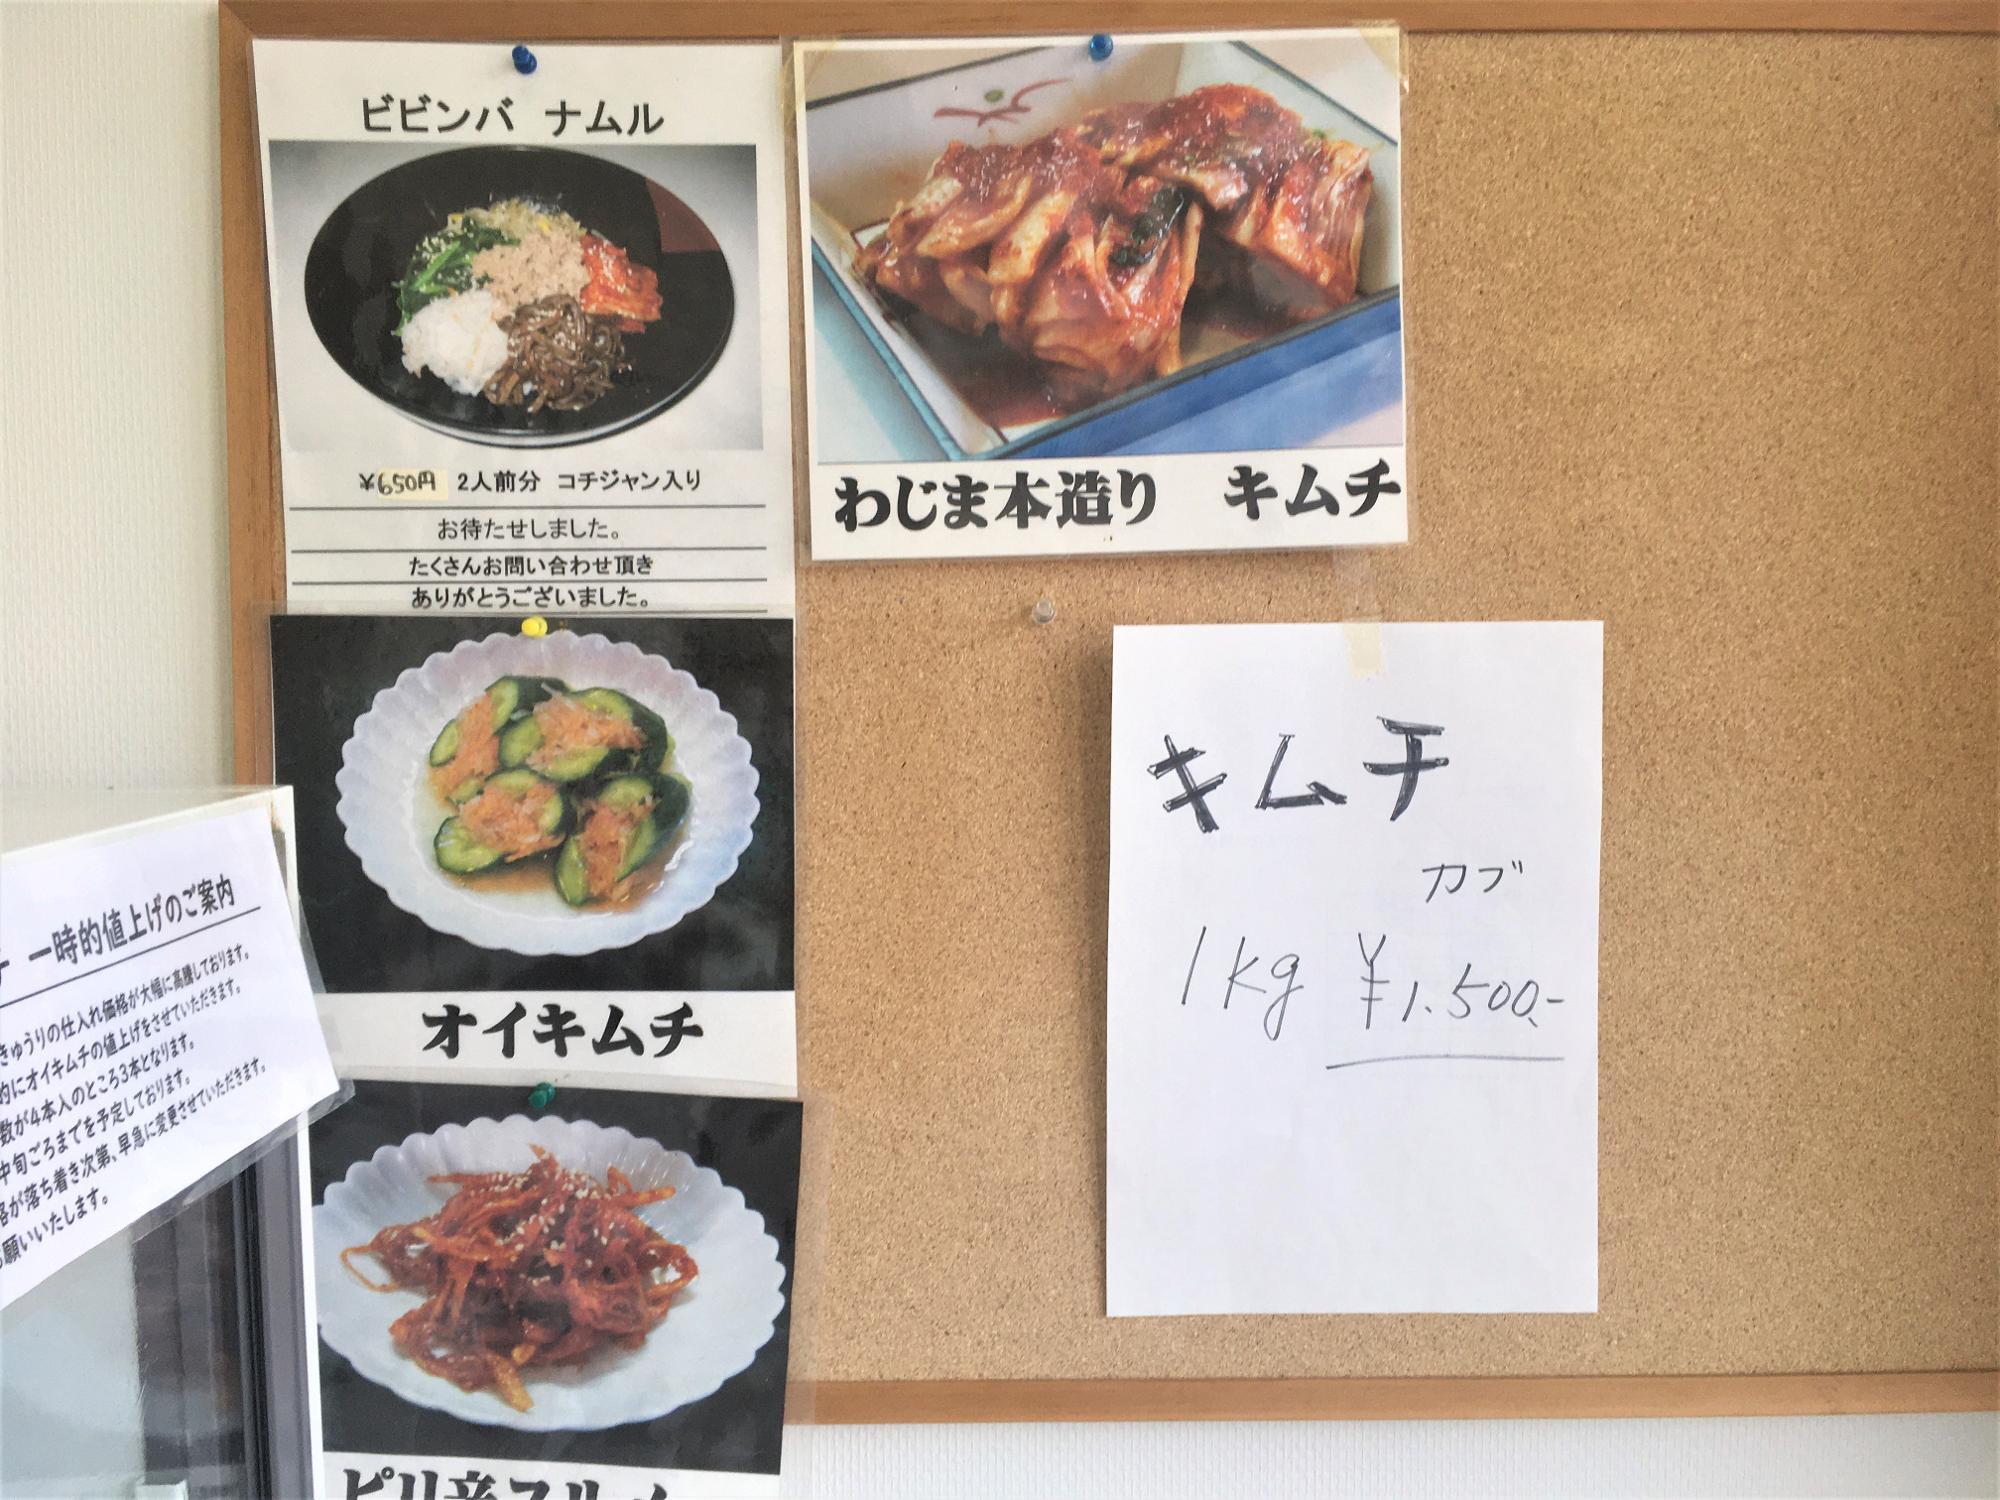 ビビンバ　ナムル
¥650円 2人前分 コチジャン入り
お待たせしました。
たくさんお問い合わせ頂き
ありがとうございました。
わじま本造り キムチ
オイキムチ
ピリ辛スルメ
キムチ
カブ
1kg ¥1.500.-
一時的値上げのご案内
きゅうりの仕入れ価格が大幅に高騰しております。
的にオイキムチの値上げをさせていただきます。
数が4本入のところ3本となります。
中旬ごろまでを予定しております。
格が落ち着き次第、早急に変更させていただきます。
お願いいたします。